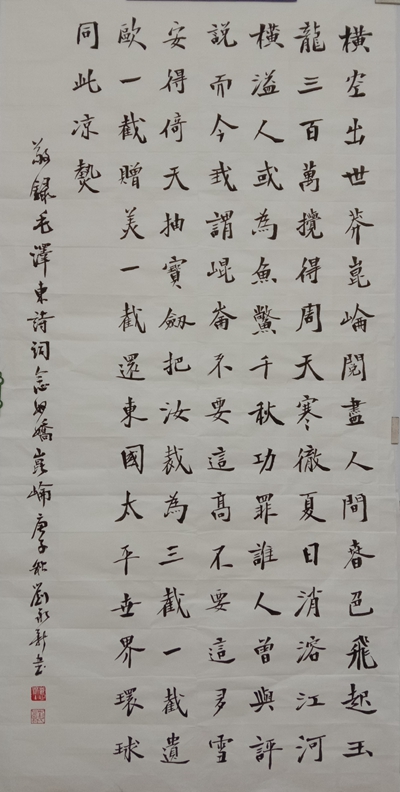 橫空出世莽崑崘閱盡人間春色飛起玉
龍三百萬攪得周天寒徹夏日消溶江河
橫溢人或為魚鱉千秋功罪誰人曾與評
說而今我謂崐崙不要這高不要這多雪
安得倚天抽寶劔把汝裁為三截一截遺
歐一截贈美一截還東國太平世界環球
同此凉熱
敬録毛澤東詩詞念奴嬌崑崘庚子秋劉永新书